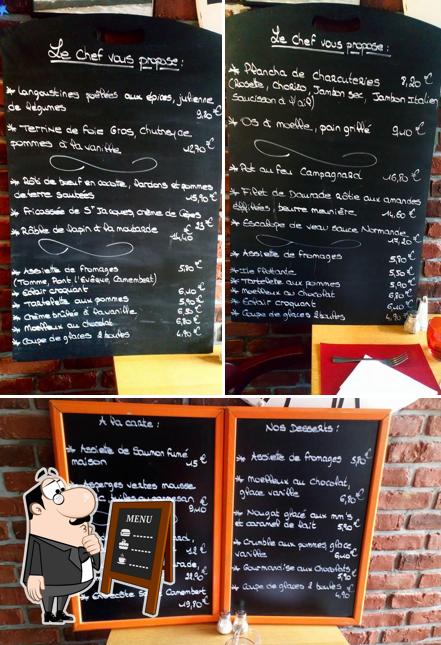 Le Chef vous propose :
* Langoustines poêlées aux épices, julienne
de légumes
9,20 €
* Terrine de foie Gros, chutney de
pommes à la vanille
12,70 €
* Rôti de bœuf en cocotte, lardons et pommes
de terre sautées
15,90 €
* Fricassée de St Jacques, crème de Cèpes
23 €
* Râble de lapin à la moutarde
14,40 €
* Assiette de fromages 5,80 €
(Tomme, Pont l'Evèque, Camembert)
* Eclair croquant 6,40 €
* Tartelette aux pommes 5,90 €
* Crème brûlée à la vanille 6,50 €
* Moelleux au chocolat 6,80 €
* Coupe de glaces 2 boules 4,90 €
Le Chef vous propose :
* Plancha de charcuteries 8,20 €
(Rosette, Chorizo, Jambon sec, Jambon Italien,
saucisson à l'ail)
* Os à moelle, pain grillé 9,40 €
* Pot au feu Campagnard 16,80 €
* Filet de Daurade rôtie aux amandes
effilées, beurre meunière 14,60 €
* Escalope de veau sauce Normande
17,20 €
* Assiette de fromages 5,80 €
* Ile flottante 5,50 €
* Tartelette aux pommes 5,90 €
* Moelleux au Chocolat 6,80 €
* Eclair croquant 6,40 €
* Coupe de glaces 2 boules 4,90 €
A la carte :
* Assiette de Saumon fumé
maison 15 €
* Asperges vertes mousse
parmesan
9,10 €
12 €
22,90 €
Camembert
19,80 €
Nos Desserts :
* Assiette de fromages 5,80 €
* Moelleux au chocolat,
glace vanille 6,80 €
* Nougat glacé aux mm's
et caramel de lait 5,90 €
* Crumble aux pommes, glace
vanille 6,40 €
* Gourmandise aux Chocolats
5,90 €
* Coupe de glaces 2 boules
4,90 €
MENU